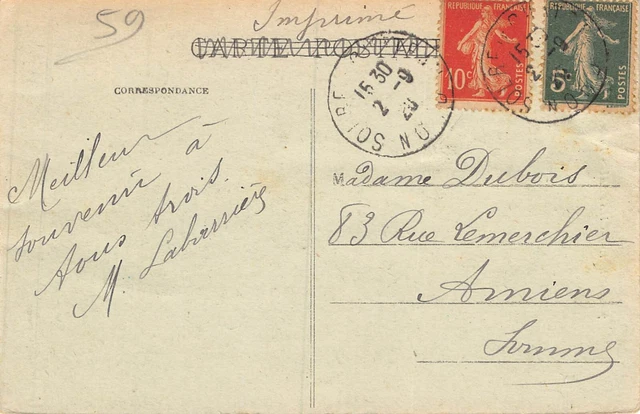 59
Imprimé
CARTE POSTALE
CORRESPONDANCE
REPUBLIQUE FRANÇAISE
10c
POSTES
REPUBLIQUE FRANÇAISE
5c
POSTES
15 30
2 - 9
20
SOIRE
NON
15
2
Meilleur
souvenir à
tous trois.
M. Labarrière
Madame Dubois
83 Rue Lemerchier
Amiens
Somme